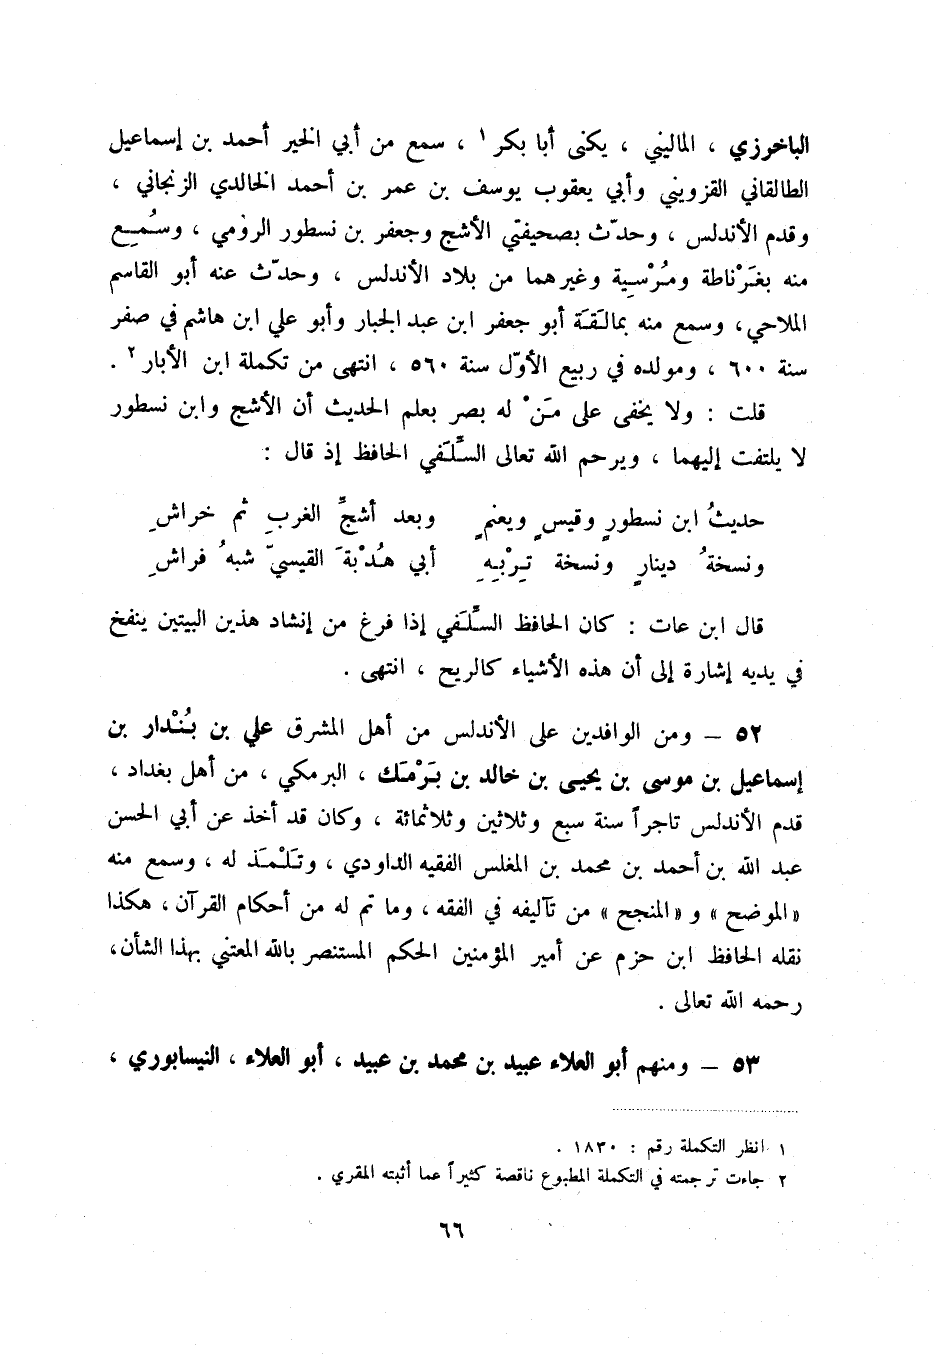 الباخرزي ، الماليني ، يكنى أبا بكر ١ ، سمع من أبي الخير أحمد بن إسماعيل
الطالقاني القزويني وأبي يعقوب يوسف بن عمر بن أحمد الخالدي الزنجاني ،
وقدم الأندلس ، وحدّث بصحيفتي الأشج وجعفر بن نسطور الرومي ، وسُمِع
منه بغَرْناطة ومُرْسِية وغيرهما من بلاد الأندلس ، وحدّث عنه أبو القاسم
الملاحي، وسمع منه بمالَقَة أبو جعفر ابن عبد الجبار وأبو علي ابن هاشم في صفر
سنة ٦٠٠ ، ومولده في ربيع الأوّل سنة ٥٦٠ ، انتهى من تكملة ابن الأبار ٢ .
قلت : ولا يخفى على مَنْ له بصر بعلم الحديث أن الأشج وابن نسطور
لا يلتفت إليهما ، ويرحم الله تعالى السِّلَفي الحافظ إذ قال :
حديثُ ابن نسطورٍ وقيسٍ ويعنمٍ وبعد أشجِّ الغربِ ثم خراشِ
ونسخةُ دينارٍ ونسخة تِرْبِهِ أبي هُدْبةَ القيسيّ شبهُ فراشِ
قال ابن عات : كان الحافظ السِّلَفي إذا فرغ من إنشاد هذين البيتين ينفخ
في يديه إشارة إلى أن هذه الأشياء كالريح ، انتهى .
٥٢ – ومن الوافدين على الأندلس من أهل المشرق علي بن بُنْدار بن
إسماعيل بن موسى بن يحيى بن خالد بن بَرْمَك ، البرمكي ، من أهل بغداد ،
قدم الأندلس تاجراً سنة سبع وثلاثين وثلاثمائة ، وكان قد أخذ عن أبي الحسن
عبد الله بن أحمد بن محمد بن المغلس الفقيه الداودي ، وتَلْمَذ له ، وسمع منه
« الموضح » و « المنجح » من تآليفه في الفقه ، وما تم له من أحكام القرآن ، هكذا
نقله الحافظ ابن حزم عن أمير المؤمنين الحكم المستنصر بالله المعتني بهذا الشأن،
رحمه الله تعالى .
٥٣ – ومنهم أبو العلاء عبيد بن محمد بن عبيد ، أبو العلاء ، النيسابوري ،
١ انظر التكملة رقم : ١٨٣٠ .
٢ جاءت ترجمته في التكملة المطبوع ناقصة كثيراً عما أثبته المقري .
٦٦